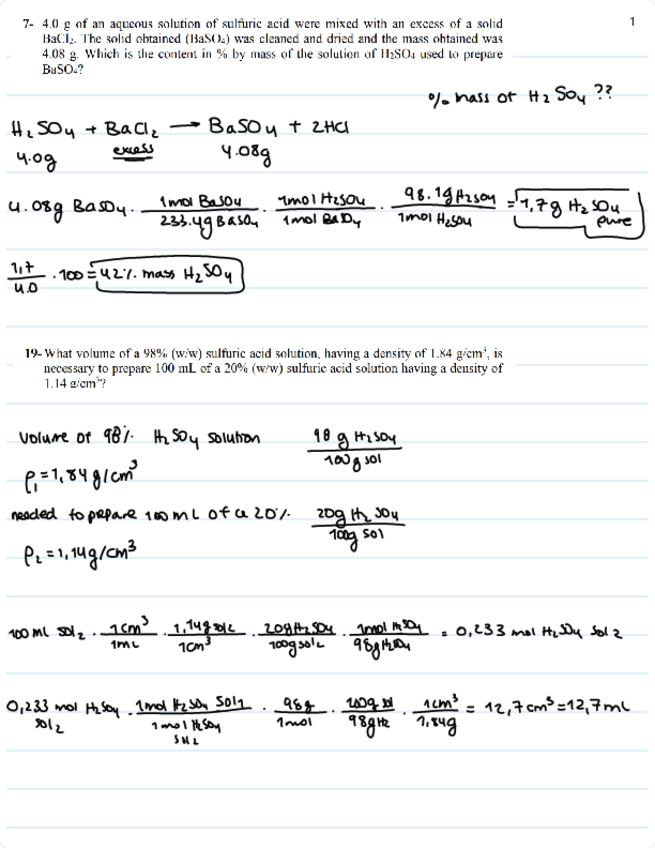 1
7- 4.0 g of an aqueous solution of sulfuric acid were mixed with an excess of a solid
BaCl₂. The solid obtained (BaSO₄) was cleaned and dried and the mass obtained was
4.08 g. Which is the content in % by mass of the solution of H₂SO₄ used to prepare
BaSO₄?
% mass of H₂SO₄ ??
H₂SO₄ + BaCl₂ → BaSO₄ + 2HCl
4.0g excess 4.08g
4.08g BaSO₄ · 1mol BaSO₄ / 233.4g BaSO₄ · 1mol H₂SO₄ / 1mol BaSO₄ · 98.1g H₂SO₄ / 1mol H₂SO₄ = 1,7g H₂SO₄
pure
1,7 / 4.0 · 100 = 42% mass H₂SO₄
19- What volume of a 98% (w/w) sulfuric acid solution, having a density of 1.84 g/cm³, is
necessary to prepare 100 mL of a 20% (w/w) sulfuric acid solution having a density of
1.14 g/cm³?
Volume of 98% H₂SO₄ solution 98 g H₂SO₄ / 100g sol
ρ₁ = 1,84 g/cm³
needed to prepare 100 mL of a 20% 20g H₂SO₄ / 100g sol
ρ₂ = 1,14g/cm³
100 mL sol₂ · 1cm³ / 1mL · 1,14g sol₂ / 1cm³ · 20g H₂SO₄ / 100g sol₂ · 1mol H₂SO₄ / 98g H₂SO₄ = 0,233 mol H₂SO₄ sol 2
0,233 mol H₂SO₄ sol₂ · 1mol H₂SO₄ Sol1 / 1mol H₂SO₄ sol 2 · 98g / 1mol · 100g sol / 98g H₂ · 1cm³ / 1,84g = 12,7cm³ = 12,7mL